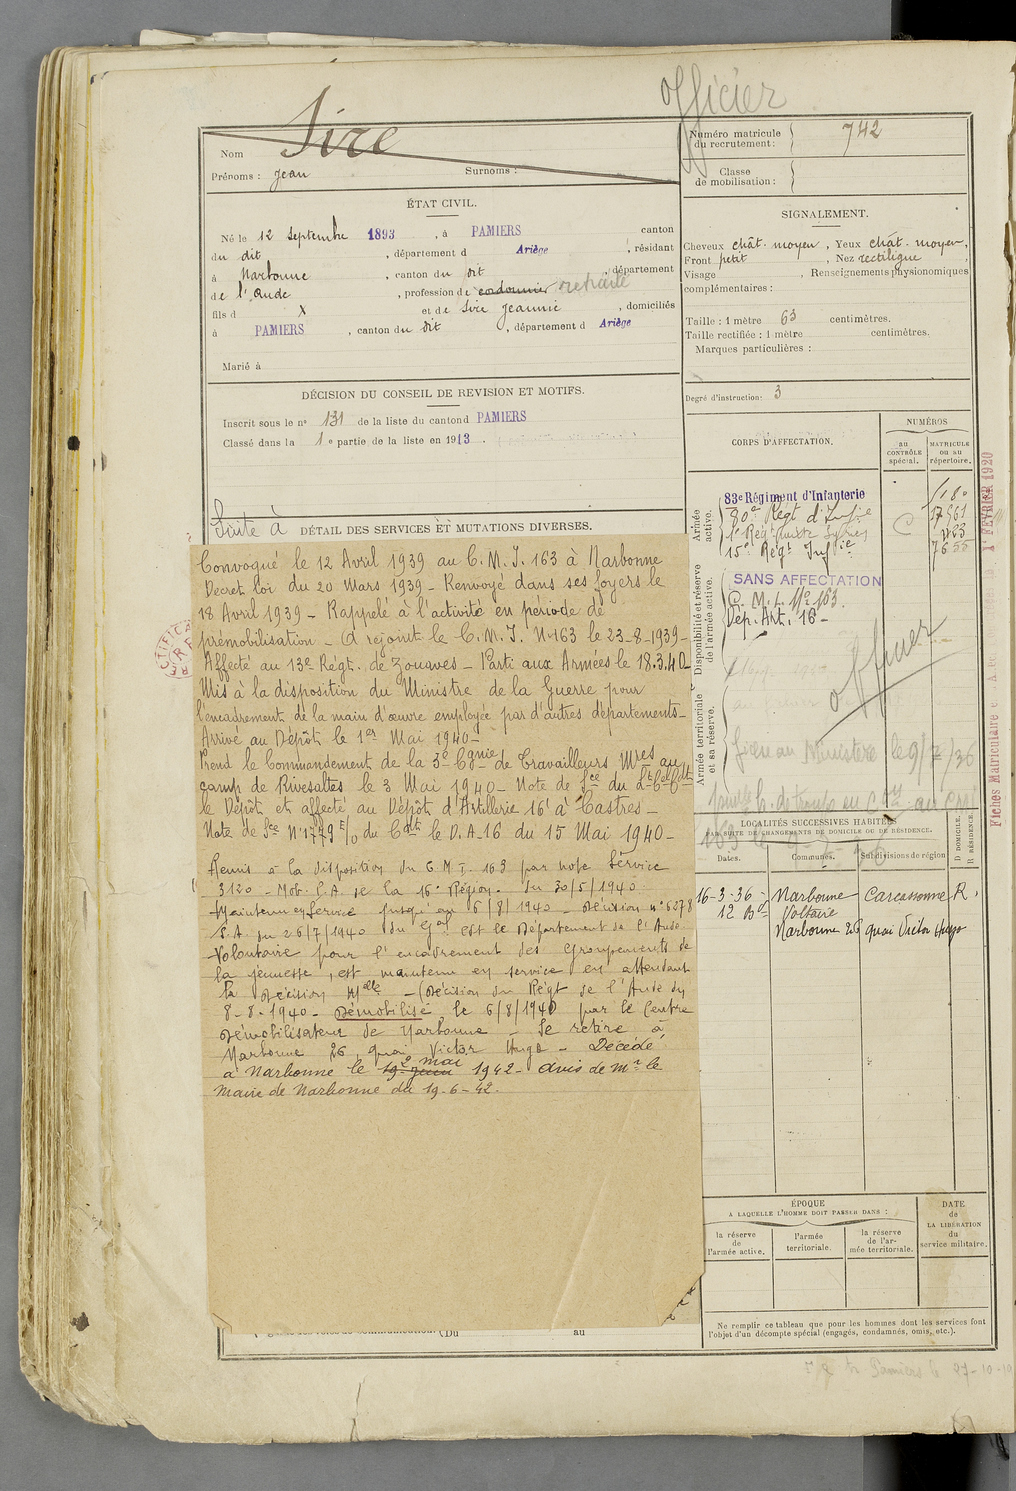 officier
Sire
Nom
Prénoms : Jean Surnoms :
Numéro matricule du recrutement : 742
Classe de mobilisation :
ÉTAT CIVIL.
Né le 12 Septembre 1893, à PAMIERS canton
du dit, département d Ariège, résidant
à Narbonne, canton du dit, département
de l'Aude, profession de cordonnier retraité
fils d X et de Sire Jeanne, domiciliés
à PAMIERS, canton du dit, département d Ariège
Marié à
SIGNALEMENT.
Cheveux chât. moyen, Yeux chât. moyen,
Front petit, Nez rectiligne,
Visage , Renseignements physionomiques
complémentaires :
Taille : 1 mètre 63 centimètres.
Taille rectifiée : 1 mètre centimètres.
Marques particulières :
Degré d'instruction : 3
DÉCISION DU CONSEIL DE REVISION ET MOTIFS.
Inscrit sous le no 131 de la liste du canton d PAMIERS
Classé dans la 1e partie de la liste en 1913.
Suite à DÉTAIL DES SERVICES ET MUTATIONS DIVERSES.
Convoqué le 12 Avril 1939 au C.M.I. 163 à Narbonne
Decret loi du 20 Mars 1939 - Renvoyé dans ses foyers le
18 Avril 1939 - Rappelé à l'activité en période de
prémobilisation - a rejoint le C.M.I. N°163 le 23-8-1939-
Affecté au 13e Régt. de Zouaves - Parti aux Armées le 18.3.40-
Mis à la disposition du Ministre de la Guerre pour
l'encadrement de la main d'œuvre employée par d'autres départements-
Arrivé au Dépôt le 1er Mai 1940-
Prend le Commandement de la 3e Cgnie de Travailleurs Mres au
camp de Rivesaltes le 3 Mai 1940 - Note de Sce du
le Dépôt et affecté au Dépôt d'Artillerie 16 à Castres -
Note de Sce N°1779 du Cdt le D.A.16 du 15 Mai 1940-
Remis à la disposition du C.M.I. 163 par note Service
3120 - Mob. C.A. de la 16e Région. du 30/5/1940.
Maintenu en Service jusqu'au 6/8/1940 - Décision n° 6278
du 26/7/1940 du Gal Cdt le Département de l'Aude.
Volontaire pour l'encadrement des Groupements de
la jeunesse, est maintenu en service en attendant
la décision Mlle - (Décision du Régt de l'Aude du
8-8-1940 - Démobilisé le 6/8/1940 par le Centre
Démobilisateur de Narbonne - Se retire à
Narbonne 26 quai Victor Hugo - Décédé
à Narbonne le 19 juin 2 mai 1942 - avis de Mr le
Maire de Narbonne du 19-6-42.
CORPS D'AFFECTATION.
NUMÉROS
au CONTRÔLE spécial.
MATRICULE ou au répertoire.
Armée active.
83e Régiment d'Infanterie
80e Régt d'Infie C 17961
15e Régt Infie 7655
Disponibilité et réserve de l'armée active.
SANS AFFECTATION
C.M.I. No 163.
Dép. Art. 16 -
officier
Armée territoriale et sa réserve.
Ministère le 9/7/36
Fiches Matriculaire
1er FÉVRIER 1920
LOCALITÉS SUCCESSIVES HABITÉES
PAR SUITE DE CHANGEMENTS DE DOMICILE OU DE RÉSIDENCE.
Dates. Communes. Subdivisions de région D DOMICILE. R RÉSIDENCE.
16-3-36 - Narbonne Carcassonne R.
12 Bd Voltaire
Narbonne 26 quai Victor Hugo
ÉPOQUE
A LAQUELLE L'HOMME DOIT PASSER DANS :
la réserve de l'armée active.
l'armée territoriale.
la réserve de l'armée territoriale.
DATE de LA LIBÉRATION du service militaire.
Ne remplir ce tableau que pour les hommes dont les services font
l'objet d'un décompte spécial (engagés, condamnés, omis, etc.).
(Du au
Pamiers le 27-10-10